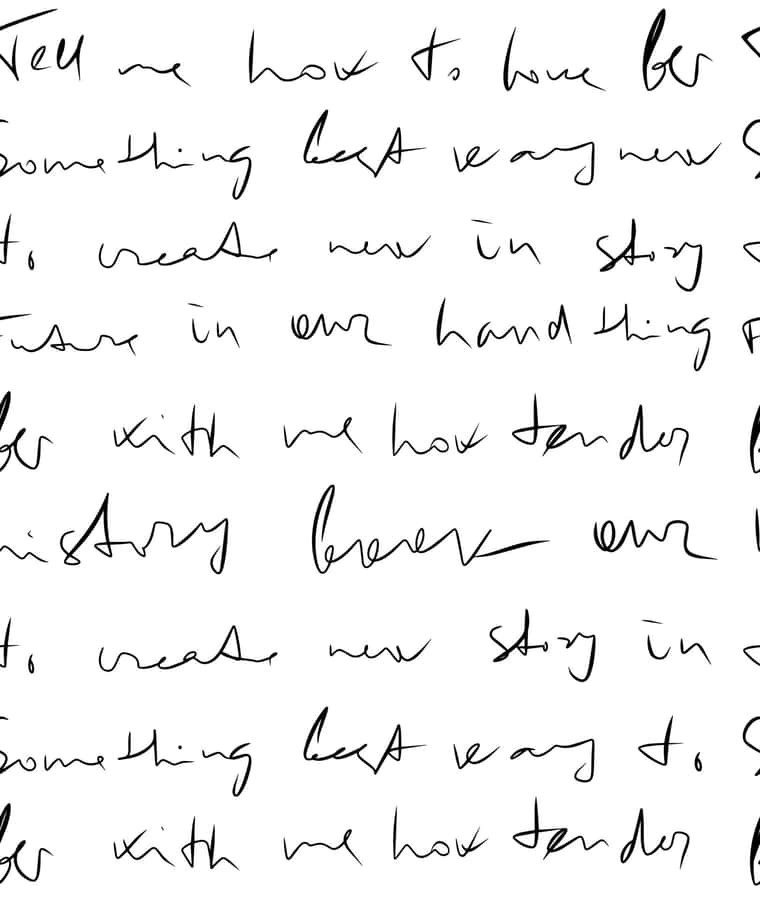 Tell me how to love her
Something best way new
to create new in story
Future in our hand thing
her with me how tender
history our
to create new story in
Something best way to
her with me how tender